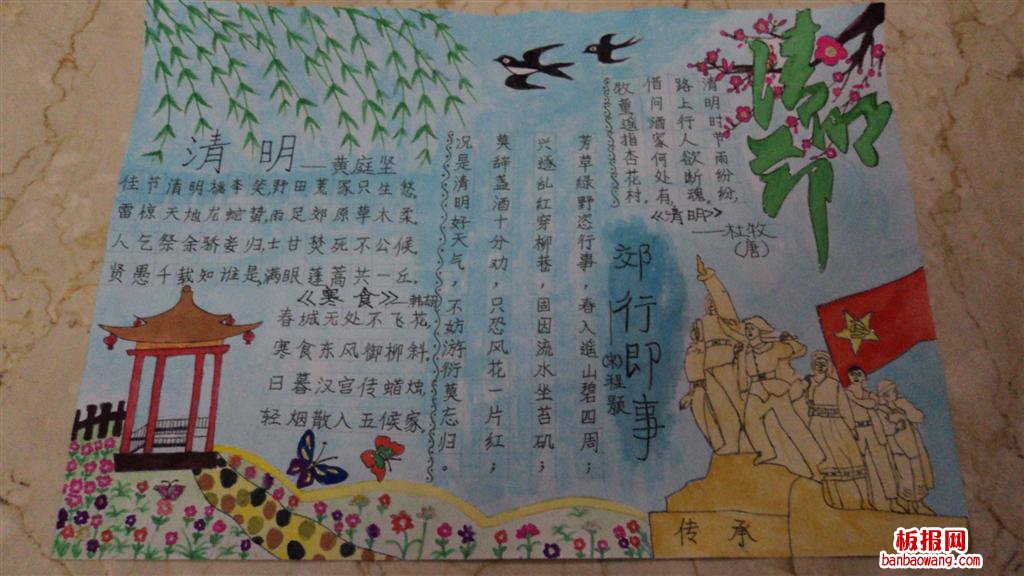 清明节
清明时节雨纷纷,
路上行人欲断魂。
借问酒家何处有,
牧童遥指杏花村。
《清明》
—杜牧
(唐)
郊行即事
—(宋)程颢
芳草绿野恣行事,春入遥山碧四周;
兴逐乱红穿柳巷,固因流水坐苔矶;
莫辞盏酒十分劝,只恐风花一片红;
况是清明好天气,不妨游衍莫忘归。
清明—黄庭坚
佳节清明桃李笑,野田荒冢只生愁
雷惊天地龙蛇蛰,雨足郊原草木柔
人乞祭余骄妾归,士甘焚死不公候
贤愚千载知谁是,满眼蓬蒿共一丘。
《寒食》—韩翃
春城无处不飞花,
寒食东风御柳斜,
日暮汉宫传蜡烛,
轻烟散入五侯家,
传承
板报网
banbaowang.com